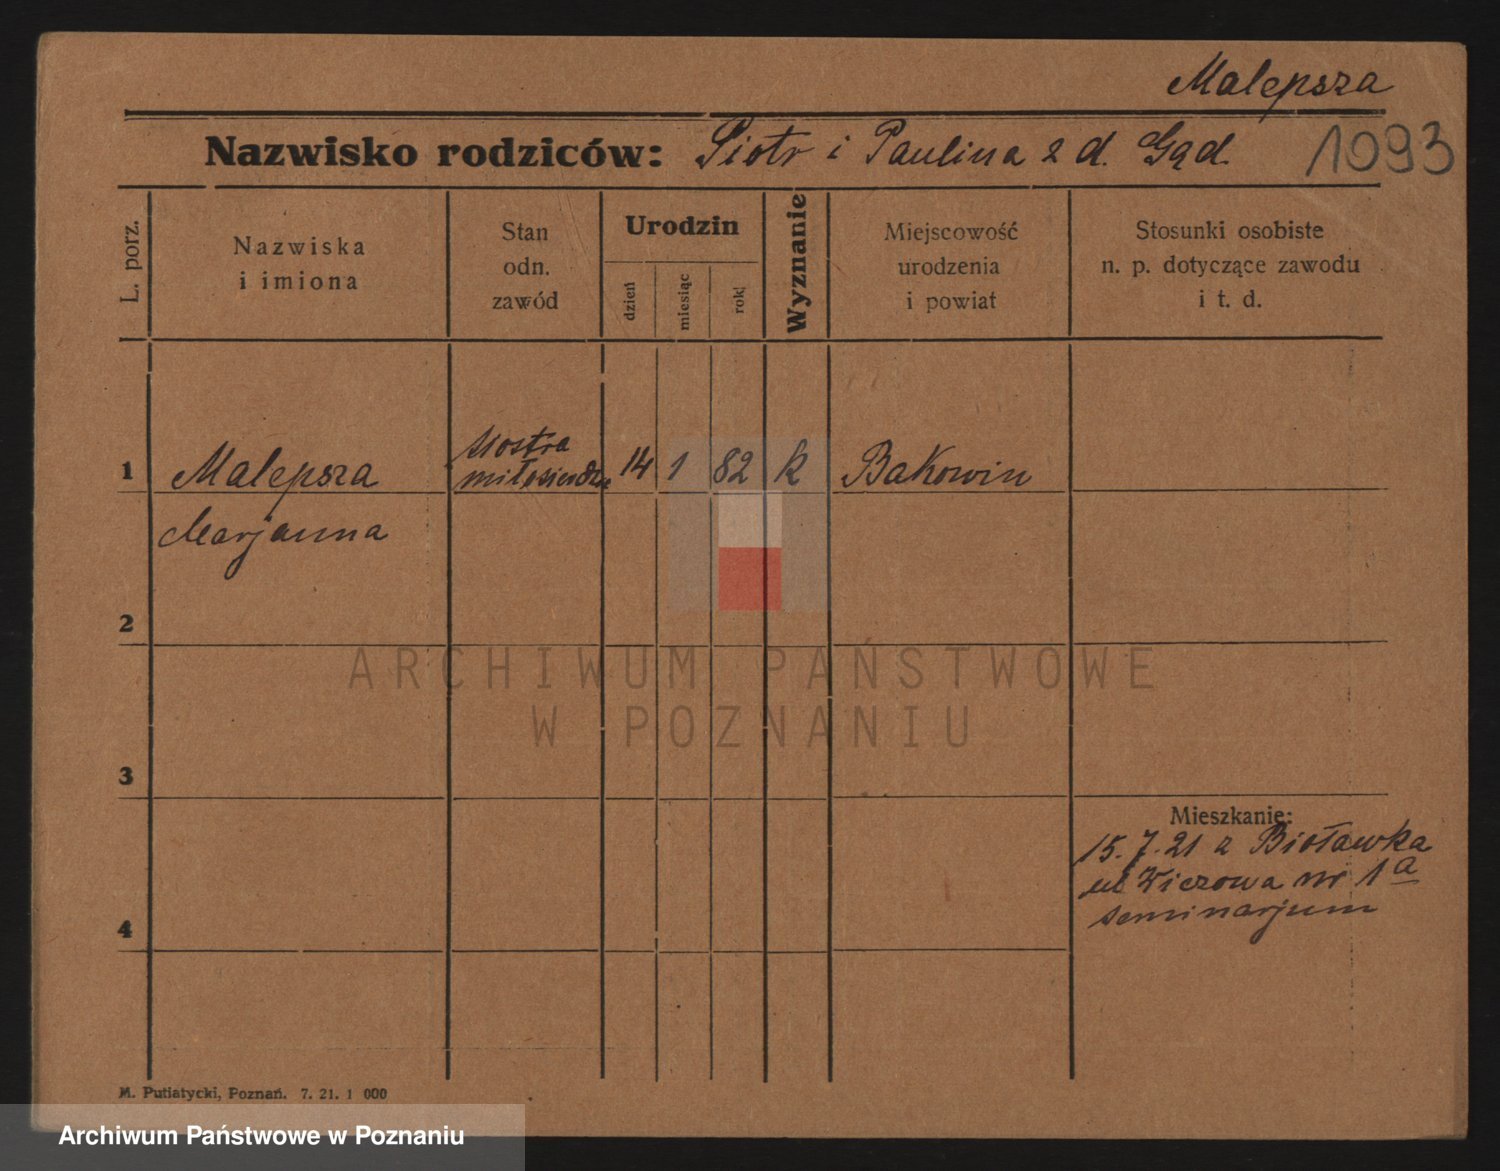 Malepsza
Nazwisko rodziców: Piotr i Paulina z d. Gąd.
1093
L. porz.
Nazwiska
i imiona
Stan
odn.
zawód
Urodzin
dzień
miesiąc
rok
Wyznanie
Miejscowość
urodzenia
i powiat
Stosunki osobiste
n. p. dotyczące zawodu
i t. d.
1
Malepsza
Marjanna
siostra
miłosierdzia
14
1
82
k
Bakowin
2
3
4
Mieszkanie:
15.7.21 z
ul nr 1a
seminarjum
M. Putiatycki, Poznań. 7. 21. 1 000
ARCHIWUM PAŃSTWOWE
W POZNANIU
Archiwum Państwowe w Poznaniu